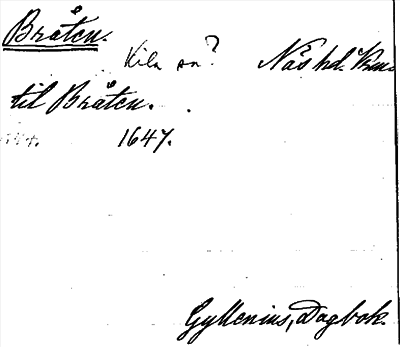 Bråten.
Kila sn? Näs hd. Vrm.
til Bråten.
1647.
Gyllenius, Dagbok.